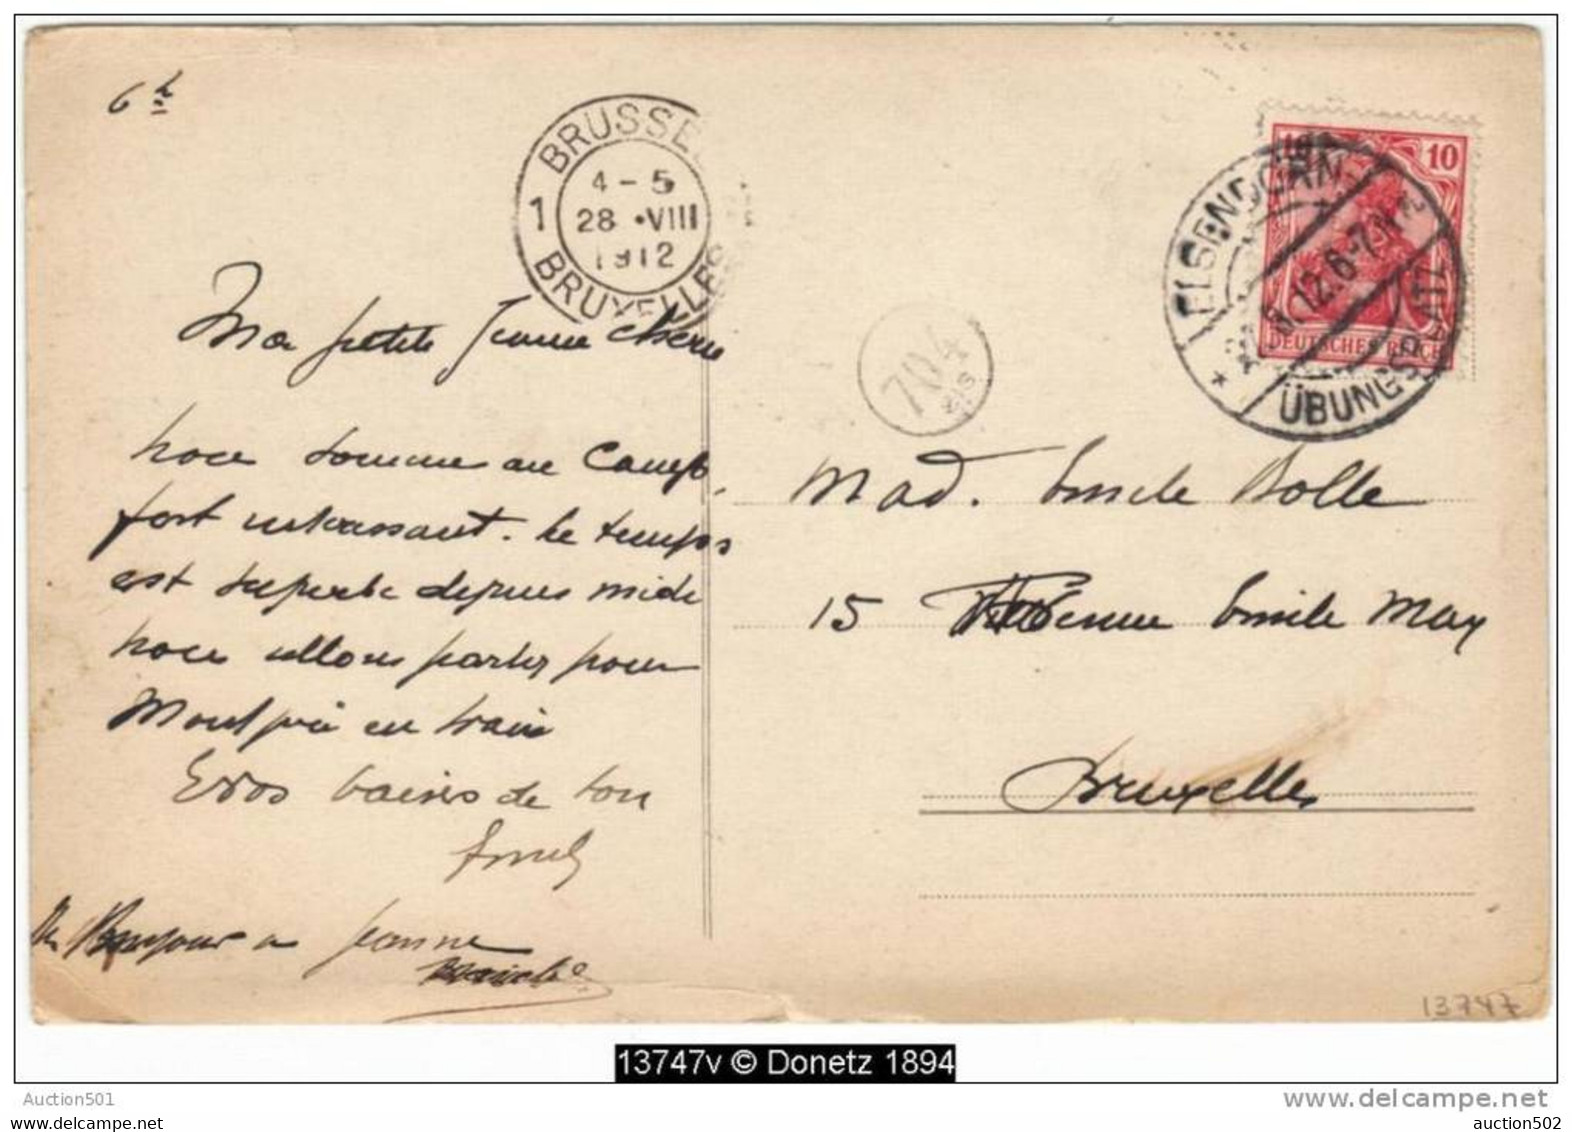 6 h
BRUSSEL
4-5
1
28 •VIII
1912
BRUXELLES
10
ELSENBORN
.12.6-7.N
DEUTSCHES REICH
ÜBUNGSPLATZ
704
BIS
Ma petite Jeanne cherie
nous sommes au Camp,
fort interessant. le temps
est superbe depuis midi
nous allons partir pour
en train
Gros baisers de ton
Emile
Bonjour a Jeanne
Mad. Emile Bolle
15 Avenue Emile Max
Bruxelles
13747
13747v © Donetz 1894
Auction501
www.delcampe.net
www.delcampe.net
auction502